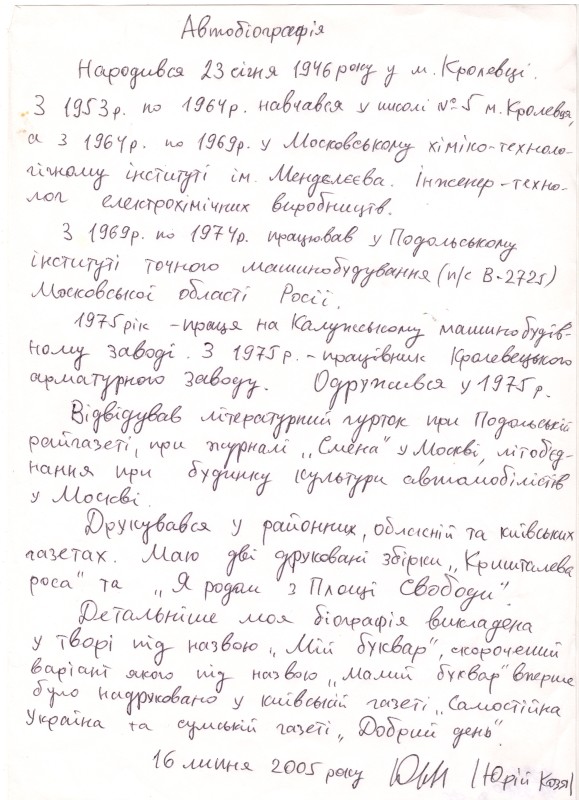 Автобіографія
Народився 23 січня 1946 року у м. Кролевці.
З 1953 р. по 1964 р. навчався у школі №5 м. Кролевця,
а з 1964 р. по 1969 р. у Московському хіміко-техноло-
гічному інституті ім. Менделєєва. Інженер-техно-
лог електрохімічних виробництв.
З 1969 р. по 1974 р. працював у Подольському
інституті точного машинобудування (п/с В-2725)
Московської області Росії.
1975 рік - праця на Калужському машинобудів-
ному заводі. З 1975 р. - працівник Кролевецького
арматурного заводу. Одружився у 1975 р.
Відвідував літературний гурток при Подольській
райгазеті, при журналі „Смена" у Москві, літобєд-
нання при будинку культури автомобілістів
у Москві.
Друкувався у районних, обласній та київських
газетах. Маю дві друковані збірки „Кришталева
роса" та „Я родом з Площі Свободи".
Детальніше моя біографія викладена
у творі під назвою „Мій буквар", скорочений
варіант якого під назвою „Малий буквар" вперше
було надруковано у київській газеті „Самостійна
Україна та сумській газеті „Добрий день".
16 липня 2005 року /Юрій Козя/